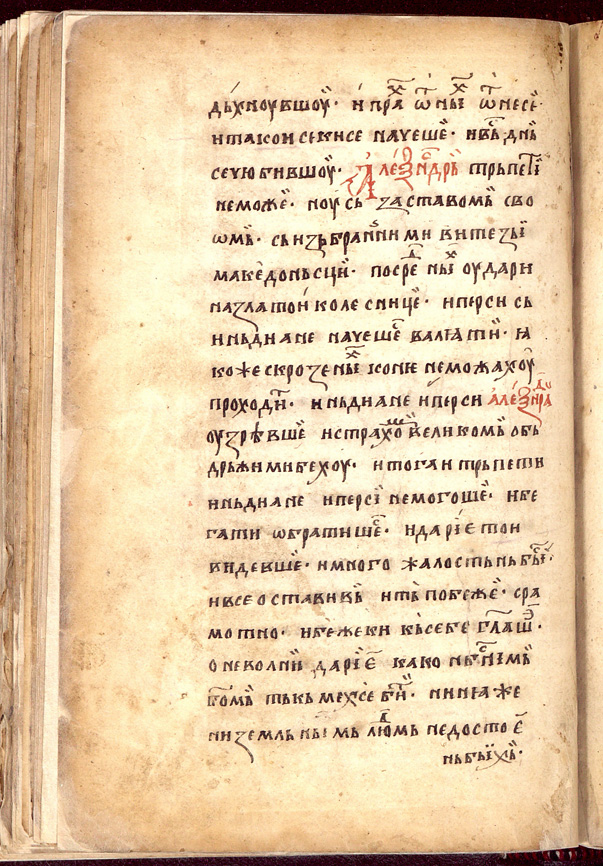 дыхноувшоу· и прⷯа ѿ ныⷯ ѿнесе·
и тако и секи се начеше· и въ дн҃ь
се ую бившоу· Алеѯⷩ҇дрь трьпетⷪ҇и
не може· ноу сь заставомь сво
ѡмь· сь изьбранними витезы
македоньсци· посреⷣ ныⷯ оудари
на златой колеснице· и перси сь
иньдиане начешеⷭ҇ валꙗти· ꙗ
коже скрозе ныⷯ конѥ не можахоу
проходⷮи· иньдиане и перси алеѯнⷣра
оузрѣвше и страхоⷨ великомь обь
дрьжими бехоу· и тогаи трьпети
иньдиане и персї не могоше· и бе
гати ѡбратишеⷭ҇· и дарїе тои
видевше· и много жалостьнь бⷭ҇ы·
и все оставивь и ть побеже· сра
мотно· и бежеки кь себе гл҃аше·
о неволни дарїе како нбⷭ҇нїмь
бг҃омь тькьмехсе бⷮи· ни ни ꙗже
ни землньїмь люⷣмь недостоⷨе
нь быхь·